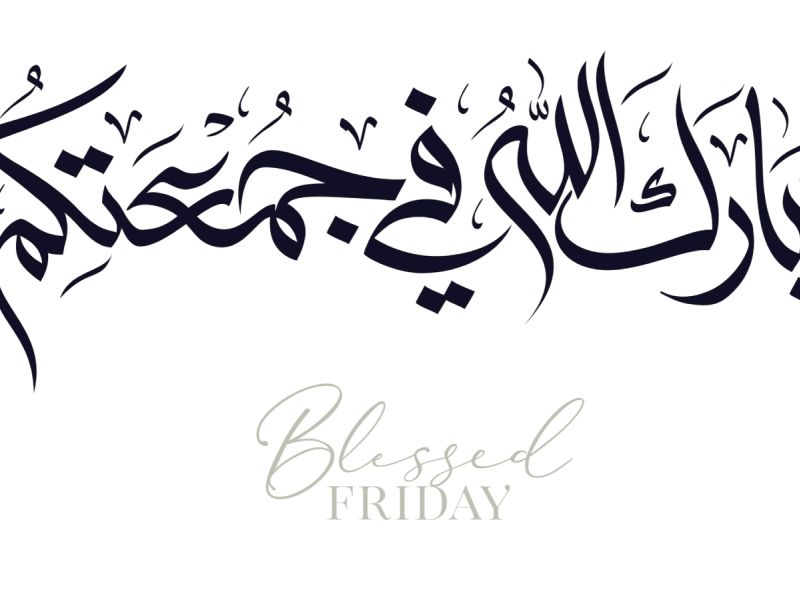 بارك اللّٰه في جُمُعَتِكُم
Blessed
FRIDAY